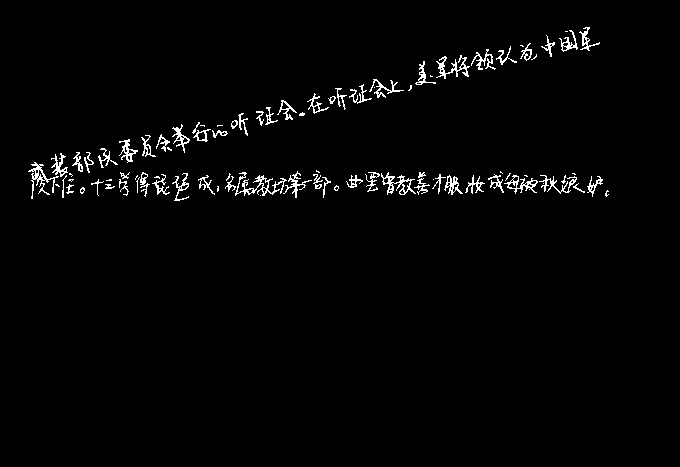 武装部队委员会举行的听证会。在听证会上,美军将领认为中国军
陵下住。十三学得琵琶成,名属教坊第一部。曲罢曾教善才服,妆成每被秋娘妒。